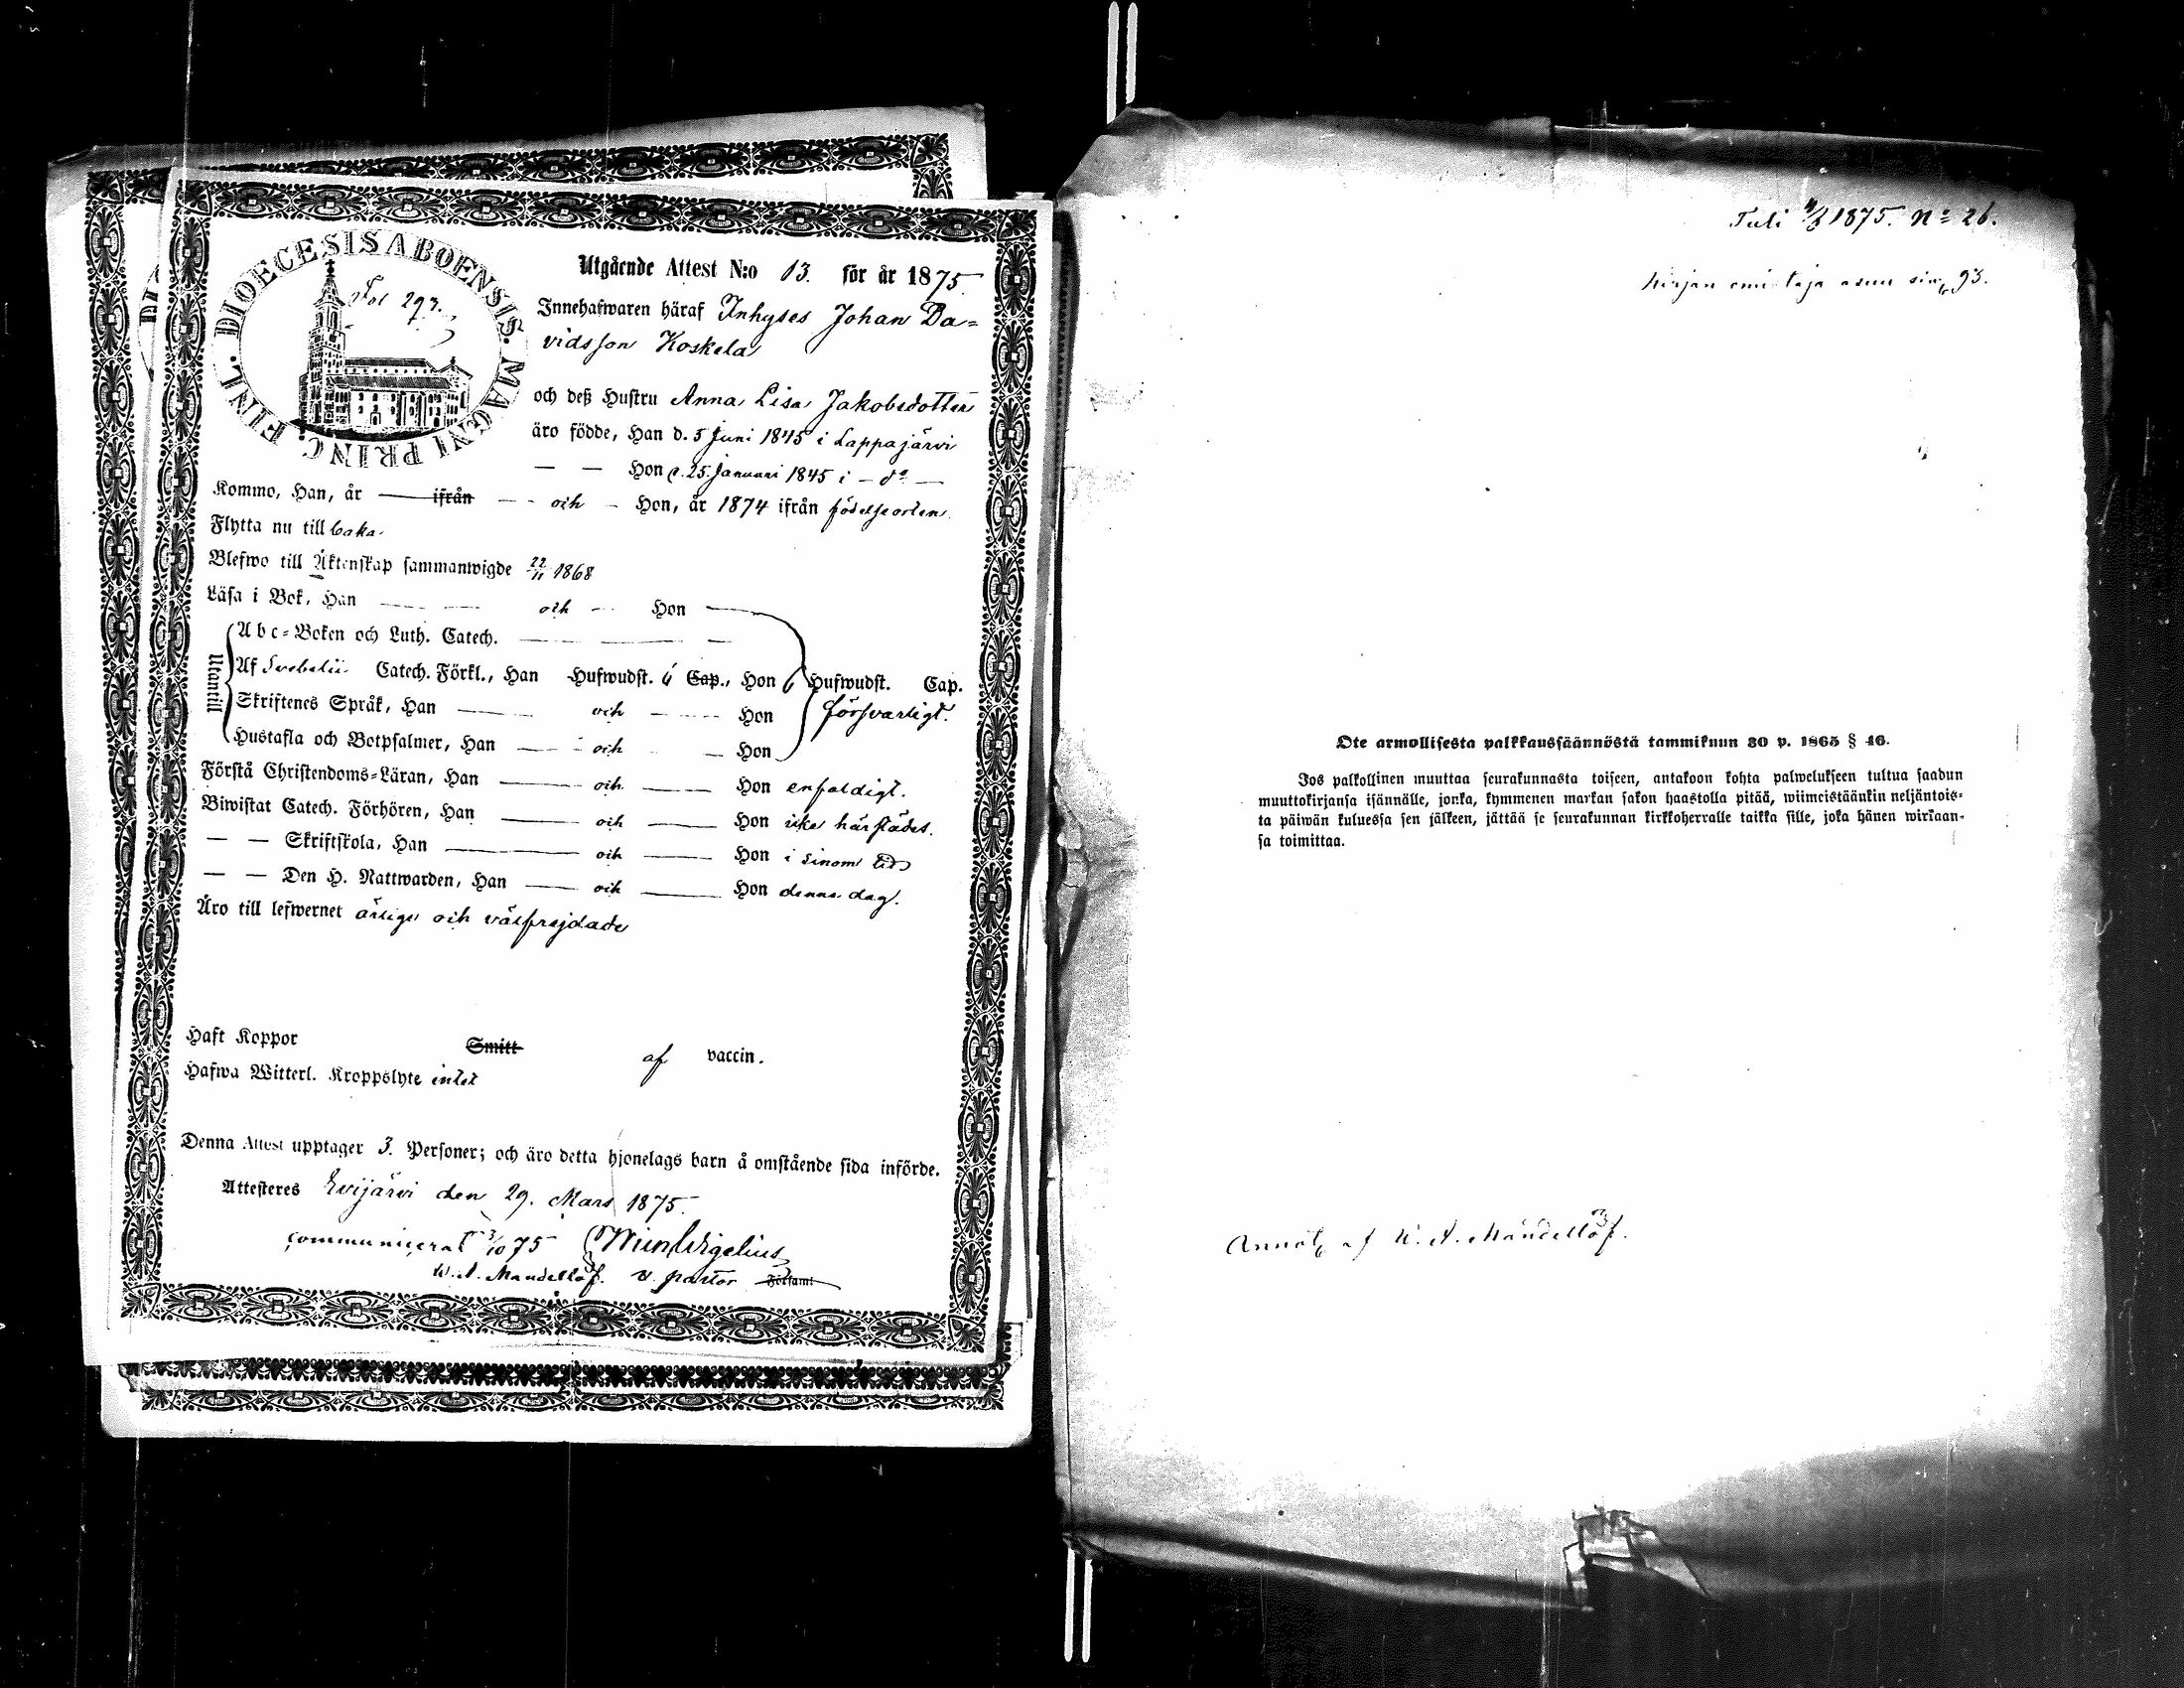 DIOECESIS ABOENSIS. MAGNI PRINC. FINL.
Fol 293.
Utgående Attest N:o 13. för år 1875.
Innehafwaren häraf Inhyses Johan Da=
vidsson Koskela
och deß Hustru Anna Lisa Jakobsdotter
äro födde, Han d. 5 Juni 1845 i Lappajärvi
— — Hon d. 25. Januari 1845 i — do —
Kommo, Han, år — ifrån — - och - Hon, år 1874 ifrån födelseorten.
Flytta nu till
Blefwo till Äktenskap sammanwigde 22/11 1868
Läsa i Bok, Han — — och — Hon —
Utantill
Abc=Boken och Luth. Catech. — — —
Af Svebelii Catech. Förkl., Han Hufwudst. 6 Cap., Hon 6 Hufwudst. Cap.
Skriftenes Språk, Han — och — Hon försvarligt.
Hustafla och Botpsalmer, Han — - och — Hon
Förstå Christendoms=Läran, Han — och — Hon enfaldigt.
Biwistat Catech. Förhören, Han — och — Hon icke härstädes.
— — Skriftskola, Han — och — Hon i sinom tid
— — Den H. Nattwarden, Han — och — Hon denna dag.
Äro till lefwernet ärliga och välfrejdade
Haft Koppor Smitt af vaccin.
Hafwa Witterl. Kroppslyte intet
Denna Attest upptager 3. Personer; och äro detta hjonelags barn å omstående sida införde.
Attesteres Evijärvi den 29. Mars 1875.
communicerat 3/10 75 Wigelius
W. A. Mandellöf. v. pastor Församl
Tuli 1875. No 26.
kirjan omistaja asuu siv. 93.
Ote armollisesta palkkaussäännöstä tammikuun 30 p. 1865 § 46.
Jos palkollinen muuttaa seurakunnasta toiseen, antakoon kohta palwelukseen tultua saadun
muuttokirjansa isännälle, jonka, kymmenen markan sakon haastolla pitää, wiimeistäänkin neljäntois=
ta päiwän kuluessa sen jälkeen, jättää se seurakunnan kirkkoherralle taikka sille, joka hänen wirkaan=
sa toimittaa.
Annot. af W. A. Mandellöf.